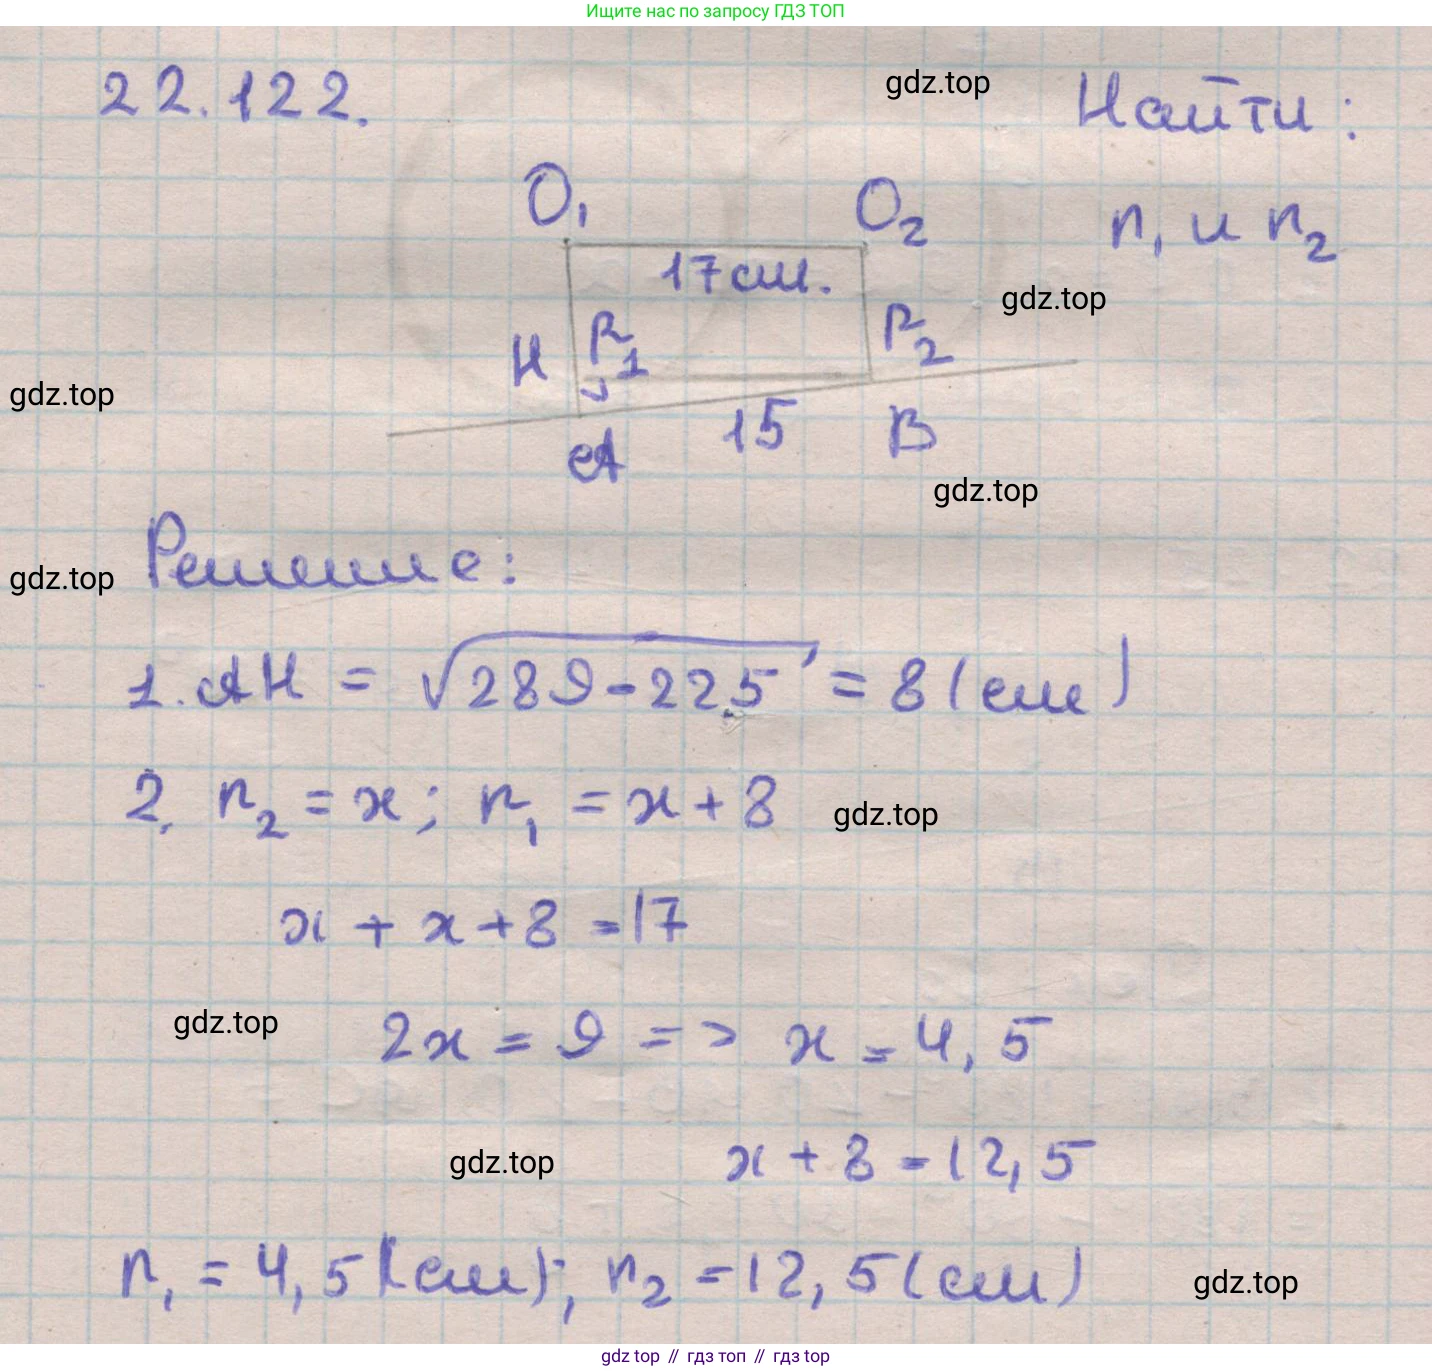 Ищите нас по запросу ГДЗ ТОП
22.122.
gdz.top
Найти:
O₁
O₂
r₁ и r₂
17см.
gdz.top
H
R₁
R₂
gdz.top
15
A
B
gdz.top
Решение:
gdz.top
1. AH = √289-225 = 8 (см)
2. r₂ = x; r₁ = x + 8
gdz.top
x + x + 8 = 17
gdz.top
2x = 9 => x = 4,5
gdz.top
x + 8 = 12,5
r₁ = 4,5 (см); r₂ = 12,5 (см)
gdz.top
gdz top // гдз топ // gdz top